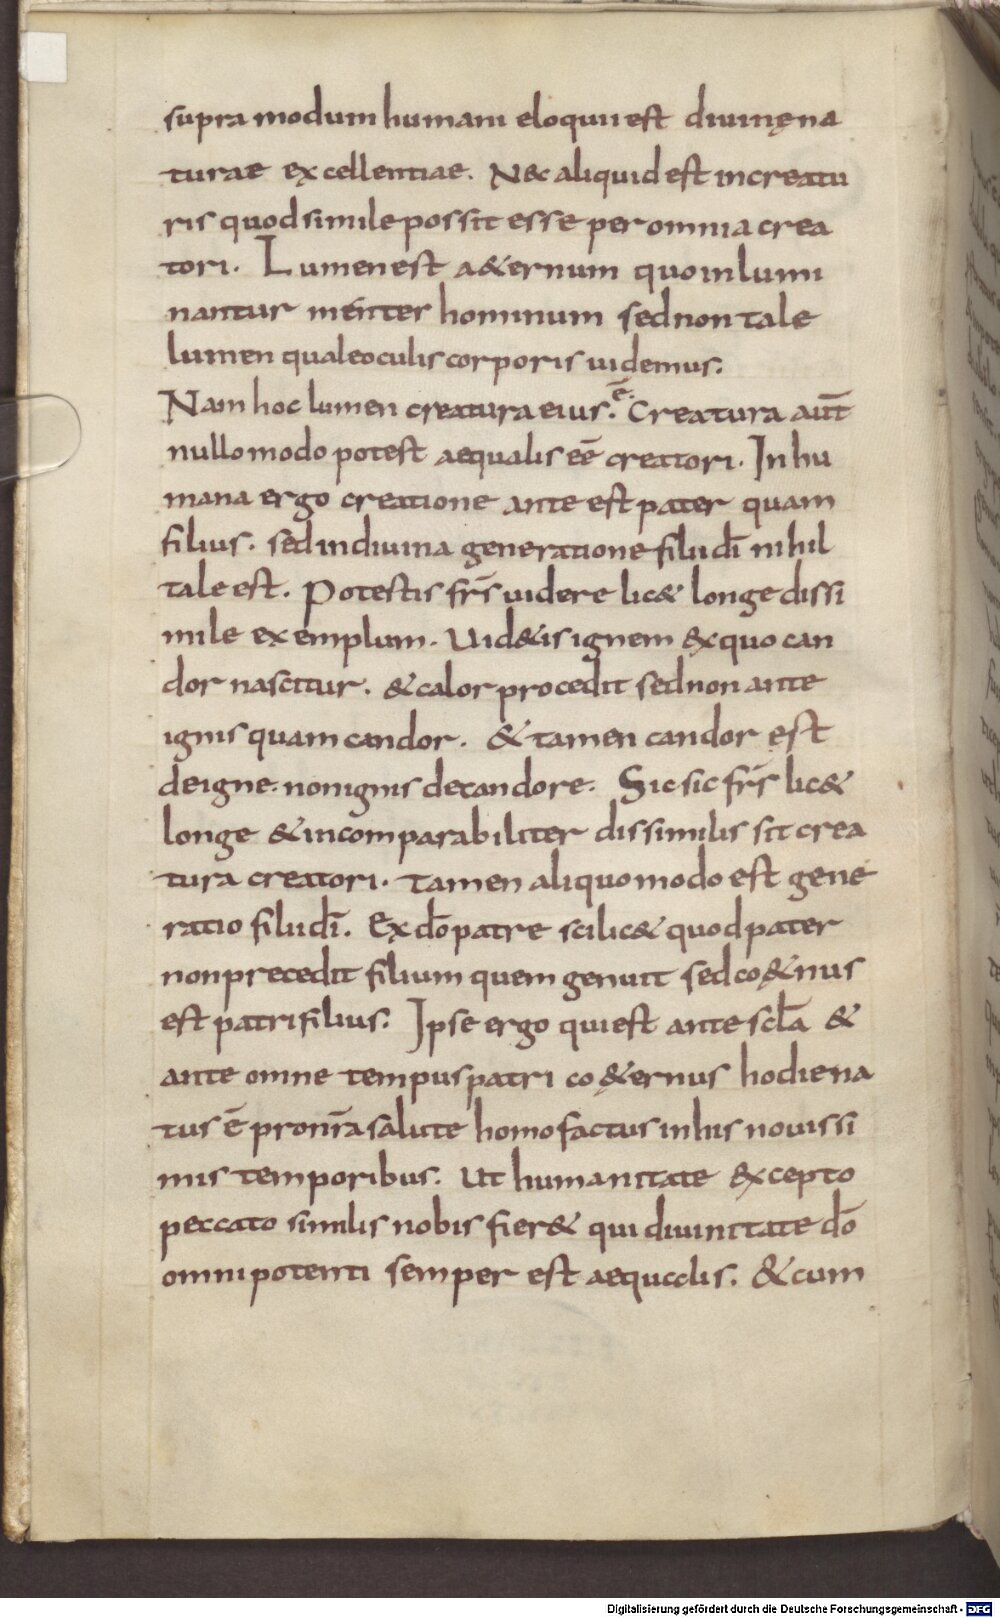 supra modum humani eloquii est diuinę na
turae excellentiae. Nec aliquid est increatu
ris quod simile possit esse per omnia crea
tori. Lumen est a&ernum quo inlumi
nantur menter hominum sed non tale
lumen quale oculis corporis uidemus.
Nam hoc lumen creatura eius ē. Creatura aūt
nullo modo potest aequalis eē creatori. In hu
mana ergo creatione ante est pater quam
filius. sed in diuina generatione filii dī nihil
tale est. Potestis frs̄ uidere lic& longe dissi
mile exemplum. Uid&is ignem ex quo can
dor nascitur. & calor procedit sed non ante
ignis quam candor. & tamen candor est
de igne. non ignis de candore. Sic sic frs̄ lic&
longe & incomparabiliter dissimilis sit crea
tura creatori. tamen aliquo modo est gene
ratio filii dī. Ex dō patre scilic& quod pater
non precedit filium quem genuit sed co&nus
est patri filius. Ipse ergo qui est ante scl̄a &
ante omne tempus patri co&ernus hodie na
tus ē pro nr̄a salute homo factus in his nouissi
mis temporibus. Ut humanitate excepto
peccato similis nobis fier& qui diuinitate dō
omnipotenti semper est aequalis. & cum
Digitalisierung gefördert durch die Deutsche Forschungsgemeinschaft - DFG